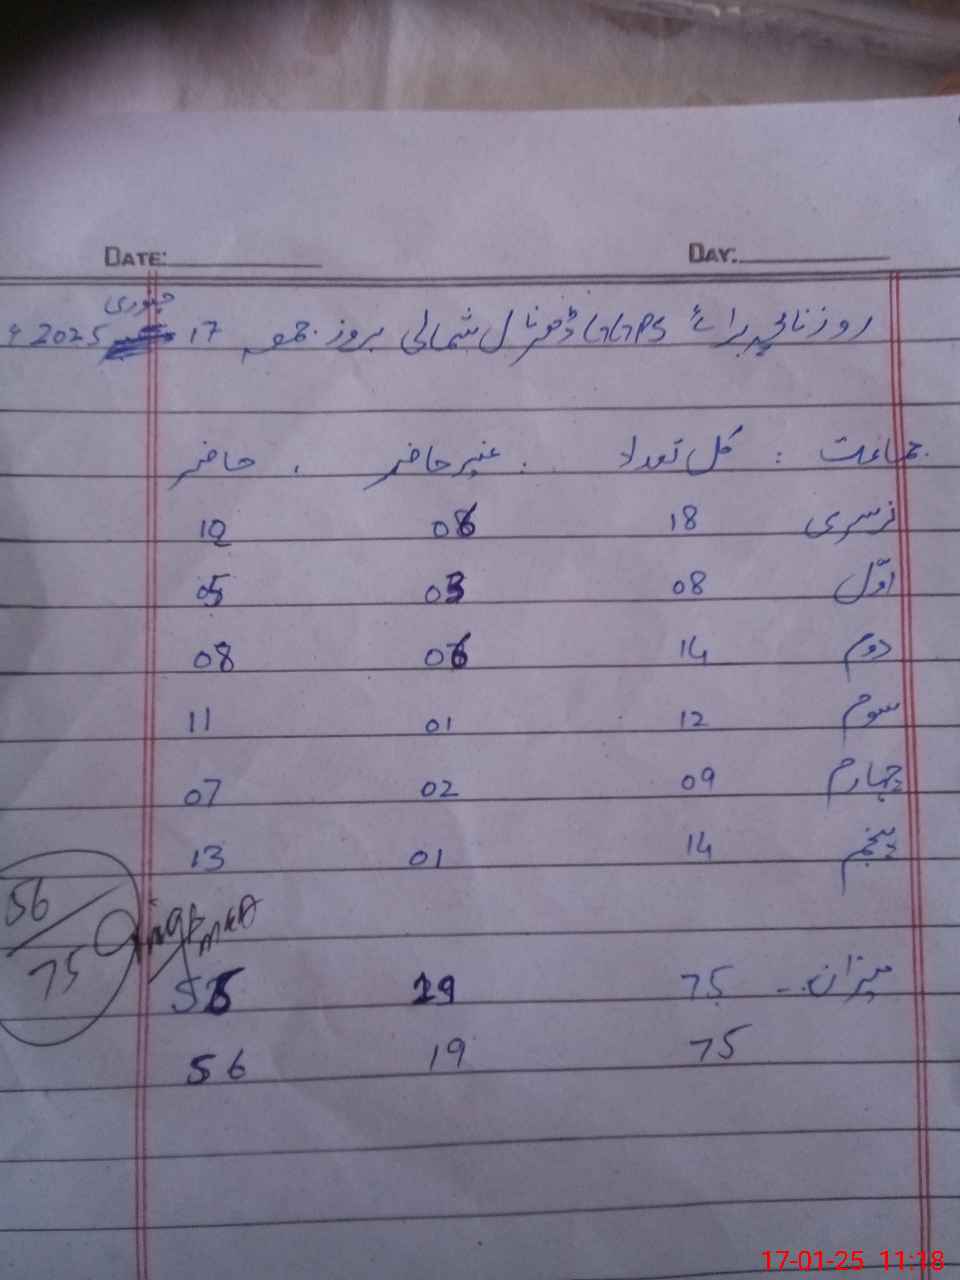 DATE: DAY:
جنوری
روزنامچہ برائے GGPS ڈھرنال شمالی بروز جمعہ 17 2025ء
جماعت : کل تعداد . غیر حاضر . حاضر
نرسری 18 06 12
اوّل 08 03 05
دوم 14 06 08
سوم 12 01 11
چہارم 09 02 07
پنجم 14 01 13
56/75
میزان -- 75 19 56
75 19 56
17-01-25 11:18